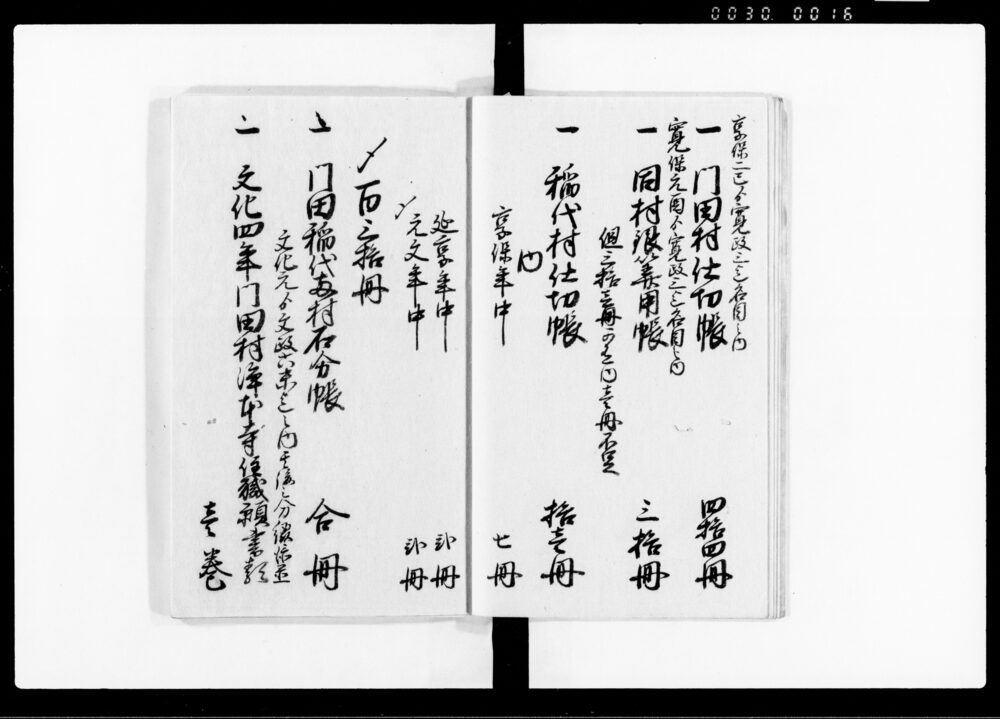 0030. 0016
享保二巳ゟ寛政三迄名目之内
一 門田村仕切帳 四拾四冊
寛保元酉ゟ寛政三迄名目之内
一 同村銀算用帳 三拾冊
但三拾壱冊可有之内壱冊不足
一 稲代村仕切帳 拾壱冊
内
享保年中 七冊
延享年中 弐冊
元文年中 弐冊
〆百三拾冊
一 門田稲代両村石分帳 合冊
文化元ゟ文政六未迄之内
一 文化四年門田村浄本寺住職願書類
壱巻